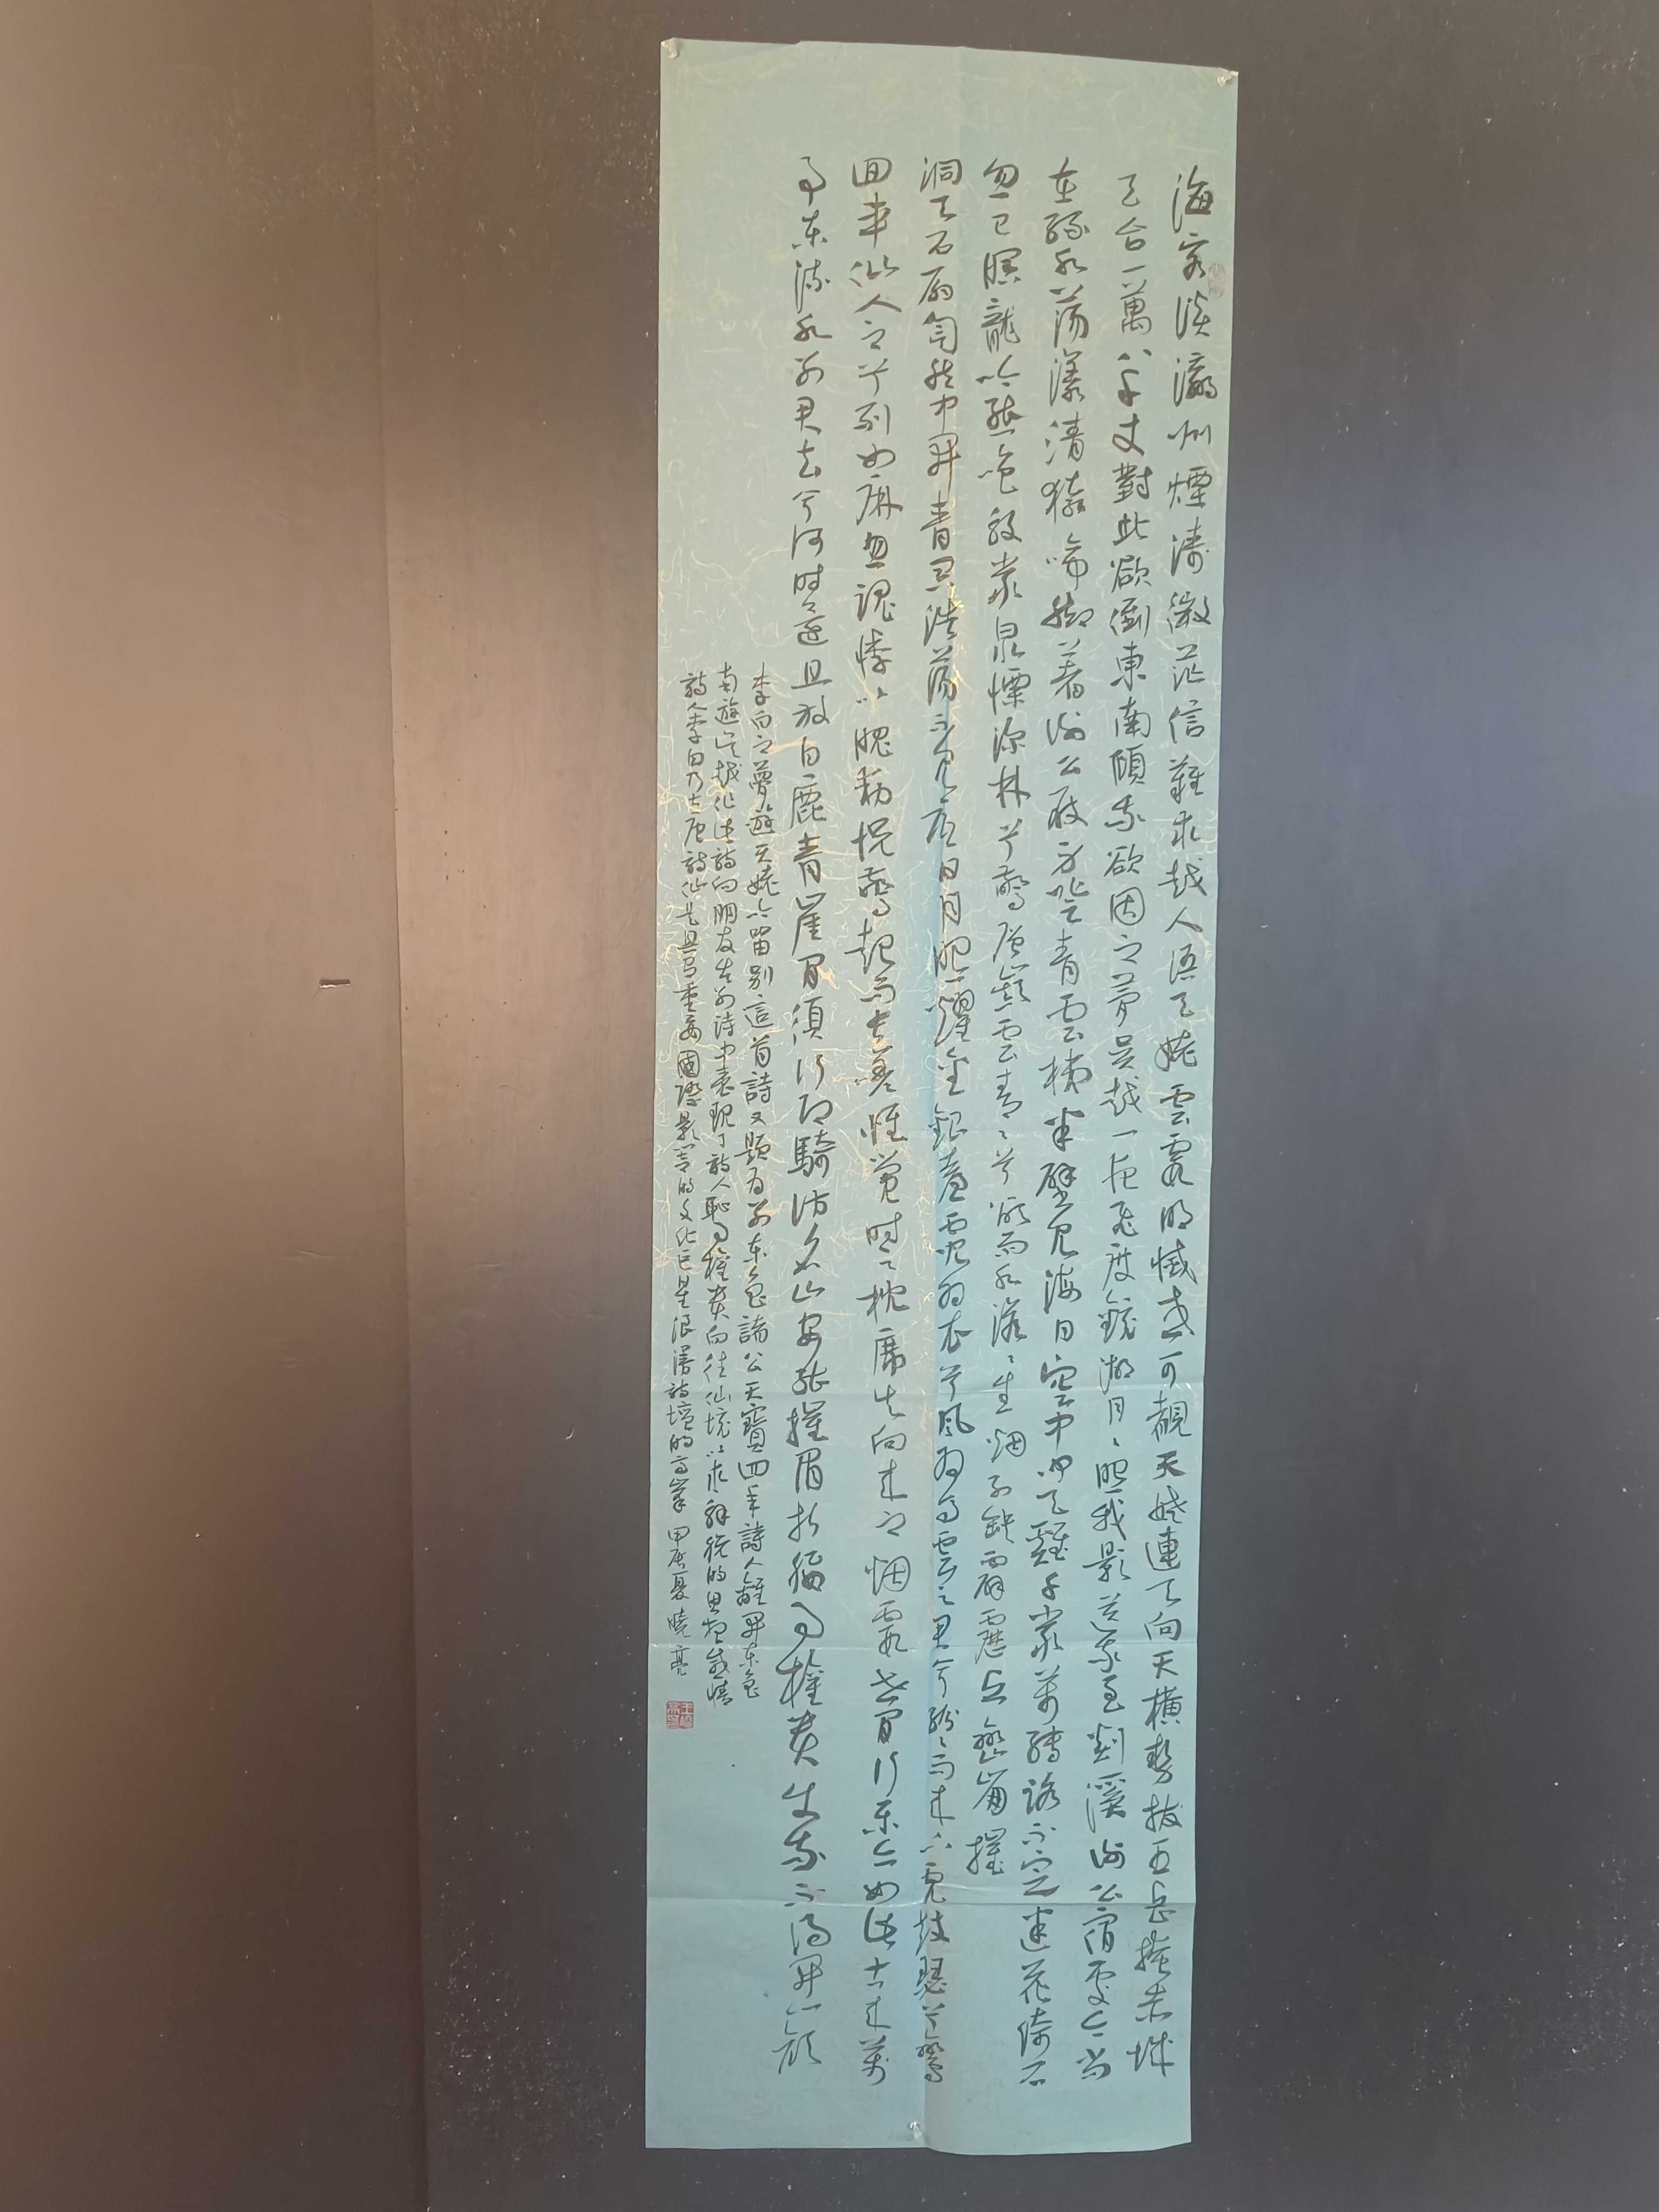 海客談瀛洲煙濤微茫信難求越人語天姥雲霞明滅或可覩天姥連天向天橫勢拔五岳掩赤城
天台一萬八千丈對此欲倒東南傾我欲因之夢吳越一夜飛度鏡湖月月照我影送我至剡溪謝公宿處今尚
在綠水蕩漾清猿啼腳著謝公屐身登青雲梯半壁見海日空中聞天雞千岩萬轉路不定迷花倚石
忽已暝龍吟熊咆殷岩泉慄深林兮驚層巔雲青青兮欲雨水澹澹生烟列缺霹靂丘巒崩摧
洞天石扉訇然中開青冥浩蕩不見底日月照耀金銀臺霓為衣兮風為馬雲之君兮紛紛而來下虎鼓瑟兮鸞
回車仙人之兮列如麻忽魂悸以魄動怳驚起而長嗟惟覺時之枕席失向來之烟霞世間行樂亦如此古來萬
事東流水別君去兮何時還且放白鹿青崖間須行即騎訪名山安能摧眉折腰事權貴使我不得開心顏
李白之夢遊天姥吟留別這首詩又題為別東魯諸公天寶四年詩人離開東魯
南遊吳越作此詩向朋友告別詩中表現了詩人恥事權貴向往仙境以求解脫的思想感情
詩人李白乃大唐詩仙是具有重要國際影響的文化巨星浪漫詩壇的高峯 甲辰夏曉亮